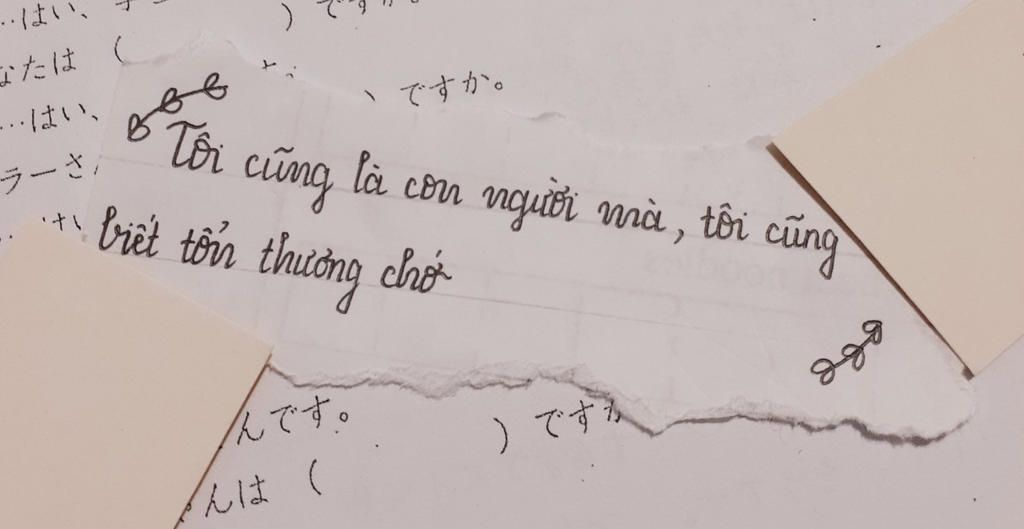 …はい、
) ですか。
なたは (
、ですか。
…はい、
ラーさ
Tôi cũng là con người mà, tôi cũng
biết tổn thương chớ
んです。
) ですか
んは (